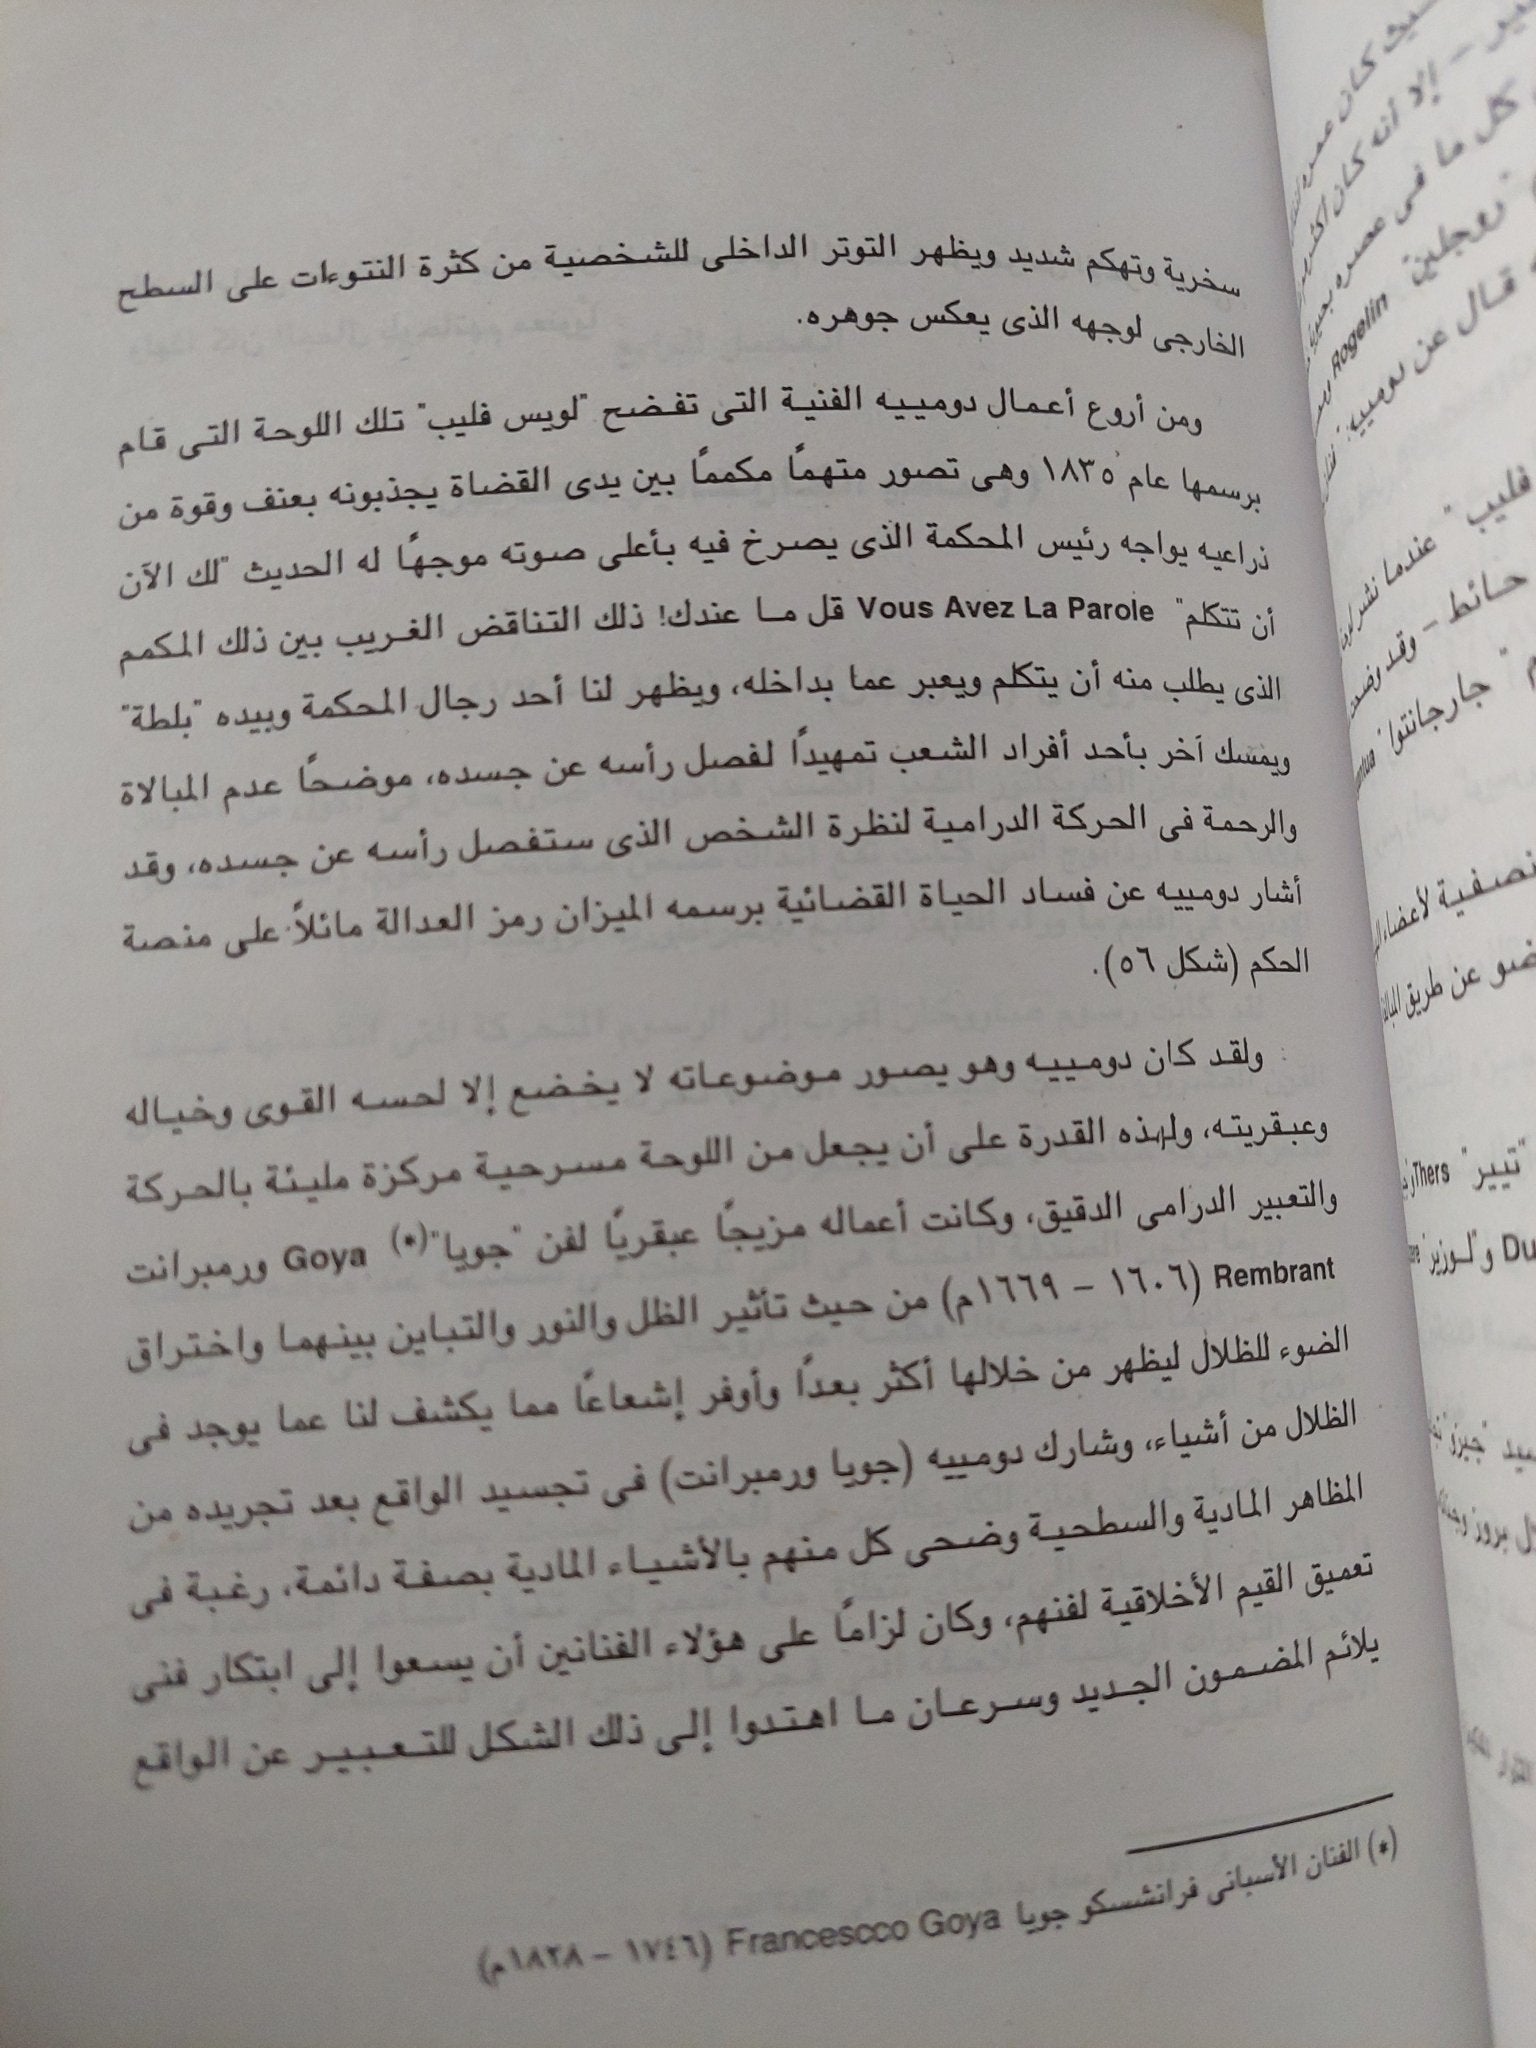 سخرية وتهكم شديد ويظهر التوتر الداخلى للشخصية من كثرة النتوءات على السطح
الخارجى لوجهه الذى يعكس جوهره.
ومن أروع أعمال دومييه الفنية التى تفضح "لويس فليب" تلك اللوحة التى قام
برسمها عام ١٨٣٥ وهى تصور متهمًا مكممًا بين يدى القضاة يجذبونه بعنف وقوة من
ذراعيه يواجه رئيس المحكمة الذى يصرخ فيه بأعلى صوته موجهًا له الحديث "لك الآن
أن تتكلم" Vous Avez La Parole قل ما عندك! ذلك التناقض الغريب بين ذلك المكمم
الذى يطلب منه أن يتكلم ويعبر عما بداخله، ويظهر لنا أحد رجال المحكمة وبيده "بلطة"
ويمسك آخر بأحد أفراد الشعب تمهيدًا لفصل رأسه عن جسده، موضحًا عدم المبالاة
والرحمة فى الحركة الدرامية لنظرة الشخص الذى ستفصل رأسه عن جسده، وقد
أشار دومييه عن فساد الحياة القضائية برسمه الميزان رمز العدالة مائلاً على منصة
الحكم (شكل ٥٦).
ولقد كان دومييه وهو يصور موضوعاته لا يخضع إلا لحسه القوى وخياله
وعبقريته، ولهذه القدرة على أن يجعل من اللوحة مسرحية مركزة مليئة بالحركة
والتعبير الدرامى الدقيق، وكانت أعماله مزيجًا عبقريًا لفن "جويا"(*) Goya ورمبرانت
Rembrant (١٦٠٦ – ١٦٦٩م) من حيث تأثير الظل والنور والتباين بينهما واختراق
الضوء للظلال ليظهر من خلالها أكثر بعدًا وأوفر إشعاعًا مما يكشف لنا عما يوجد فى
الظلال من أشياء، وشارك دومييه (جويا ورمبرانت) فى تجسيد الواقع بعد تجريده من
المظاهر المادية والسطحية وضحى كل منهم بالأشياء المادية بصفة دائمة، رغبة فى
تعميق القيم الأخلاقية لفنهم، وكان لزامًا على هؤلاء الفنانين أن يسعوا إلى ابتكار فنى
يلائم المضمون الجديد وسرعان ما اهتدوا إلى ذلك الشكل للتعبير عن الواقع
(*) الفنان الأسبانى فرانشسكو جويا Francescco Goya (١٧٤٦ – ١٨٢٨م)
إلا أنه كان
كل ما فى عصره
Rogelin
قال عن دومييه:
فليب" عندما نشر
حائط – وقد
"جارجانتوا"
نصفية لأعضاء
عن طريق
"تيير" Thers
Du و"لوزير"